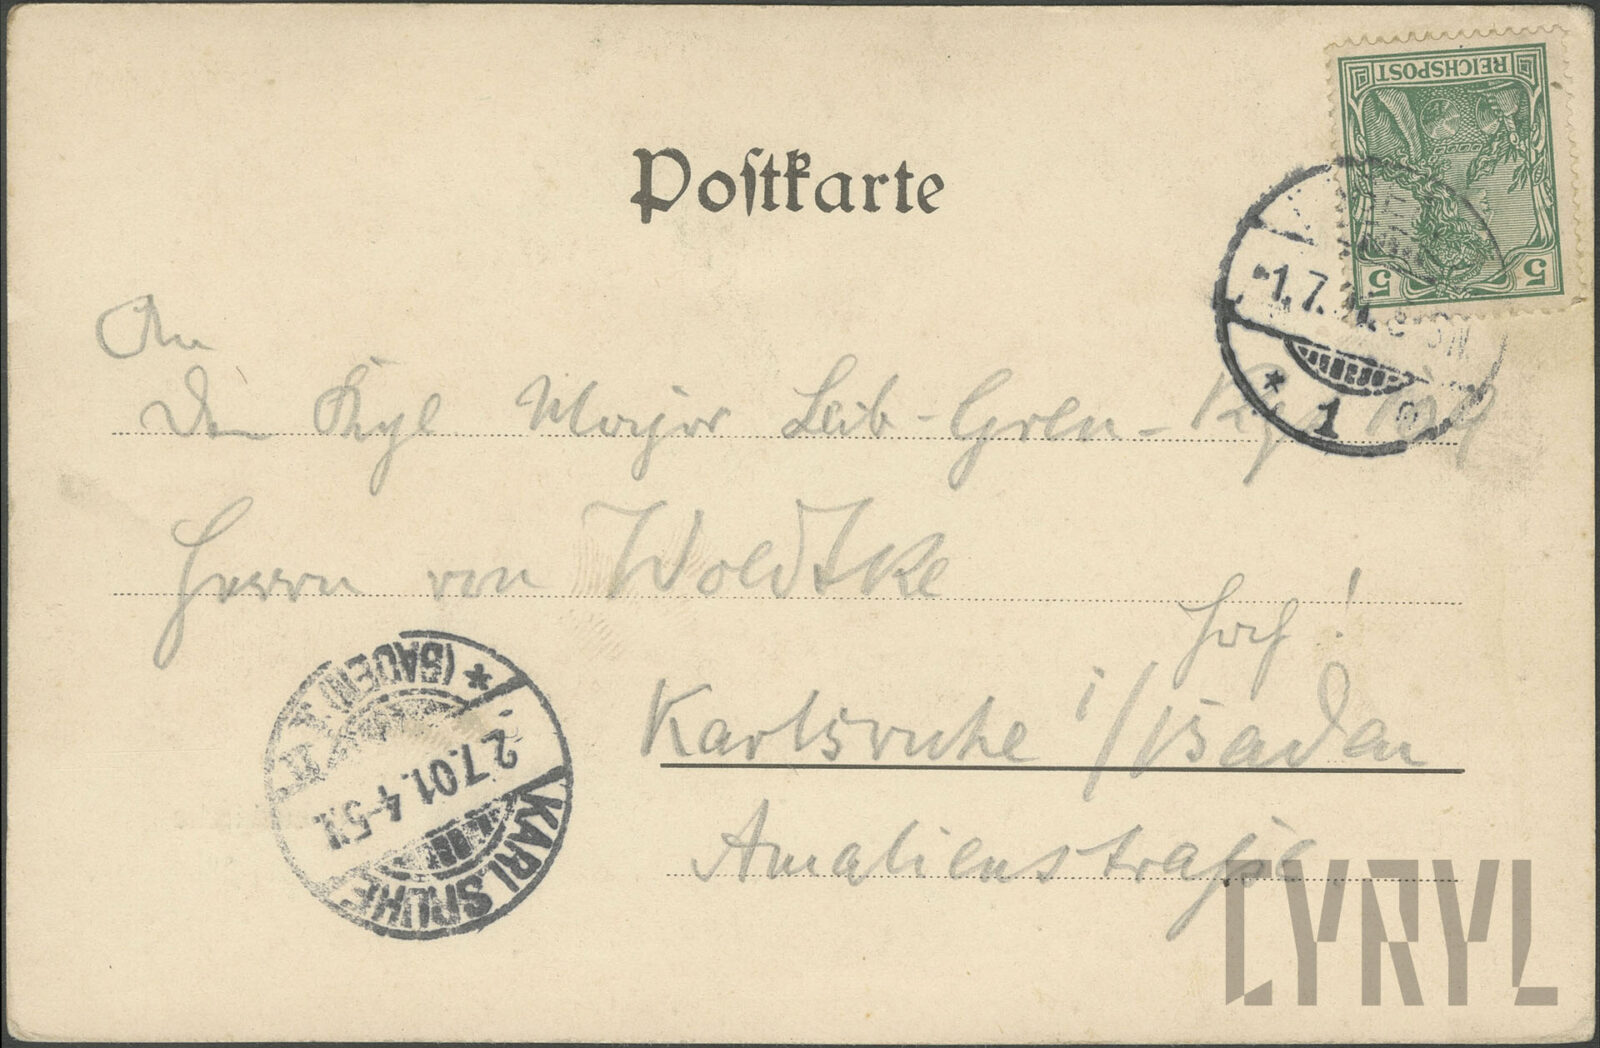 Postkarte
REICHSPOST
5 5
1.7.
* 1
An
Den Kgl Major Leib-Gren-Rgt 109
Herrn von Woldtke
hoch!
Karlsruhe i/Baden
Amalienstraße.
KARLSRUHE
2.7.01. 4-5N.
* (BADEN)
CYRYL